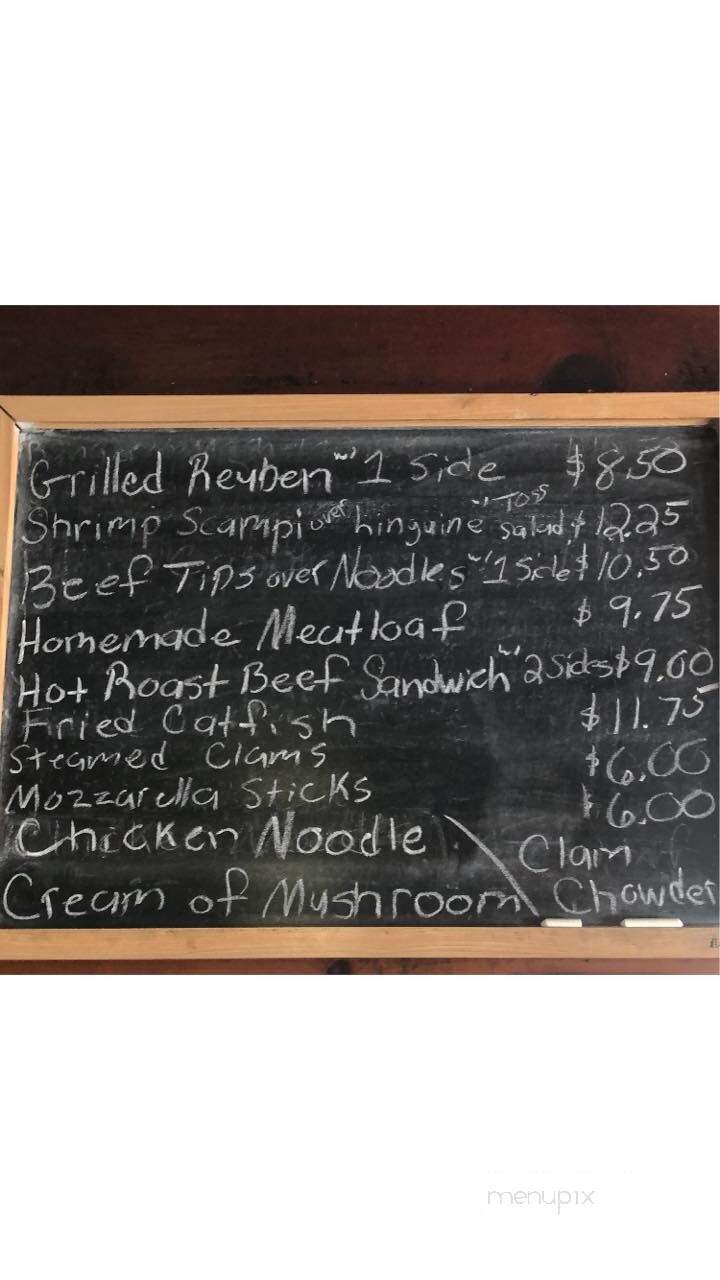 Grilled Reuben "w" 1 Side $8.50
Shrimp Scampi over hinguine "w" Toss salad $12.25
Beef Tips over Noodles "w" 1 Side $10.50
Homemade Meatloaf $9.75
Hot Roast Beef Sandwich "w" 2 Sides $9.00
Fried Catfish $11.75
Steamed Clams $6.00
Mozzarella Sticks $6.00
Chicken Noodle \ Clam
Cream of Mushroom \ Chowder
menupix